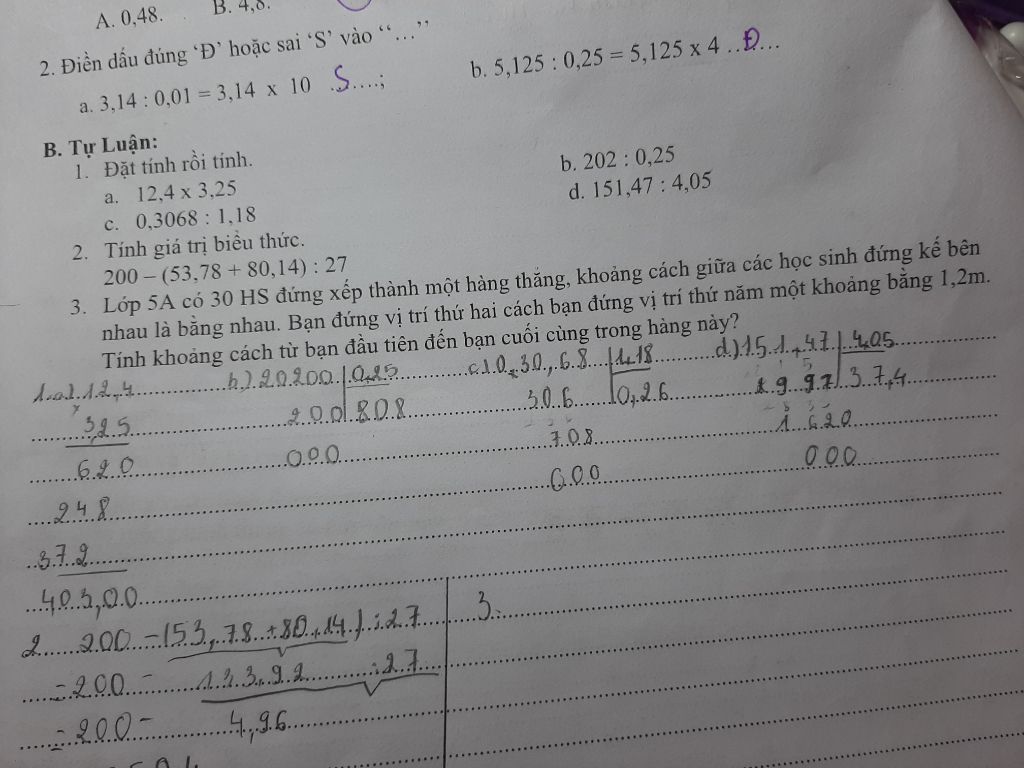 A. 0,48. B. 4,8.
2. Điền dấu đúng ‘Đ’ hoặc sai ‘S’ vào “…”
a. 3,14 : 0,01 = 3,14 x 10 .S....; b. 5,125 : 0,25 = 5,125 x 4 ..Đ...
B. Tự Luận:
1. Đặt tính rồi tính.
a. 12,4 x 3,25 b. 202 : 0,25
c. 0,3068 : 1,18 d. 151,47 : 4,05
2. Tính giá trị biểu thức.
200 – (53,78 + 80,14) : 27
3. Lớp 5A có 30 HS đứng xếp thành một hàng thẳng, khoảng cách giữa các học sinh đứng kế bên
nhau là bằng nhau. Bạn đứng vị trí thứ hai cách bạn đứng vị trí thứ năm một khoảng bằng 1,2m.
Tính khoảng cách từ bạn đầu tiên đến bạn cuối cùng trong hàng này?
1.a) 12,4 b) 20200 0,25 c) 0,30,68 1,18 d) 151,47 4,05
x 3,25 200 808 306 0,26 2997 37,4
620 000 708 1620
248 000 000
372
403,00
2 200 - (53,78 + 80,14) : 27 3.
= 200 - 133,92 : 27
= 200 - 4,96